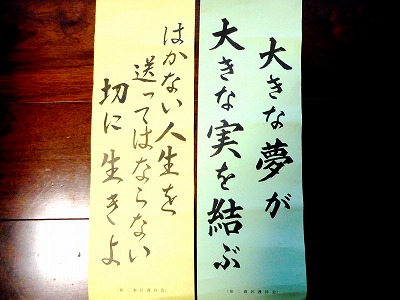 大きな夢が
大きな実を結ぶ
はかない人生を
送ってはならない
切に生きよ